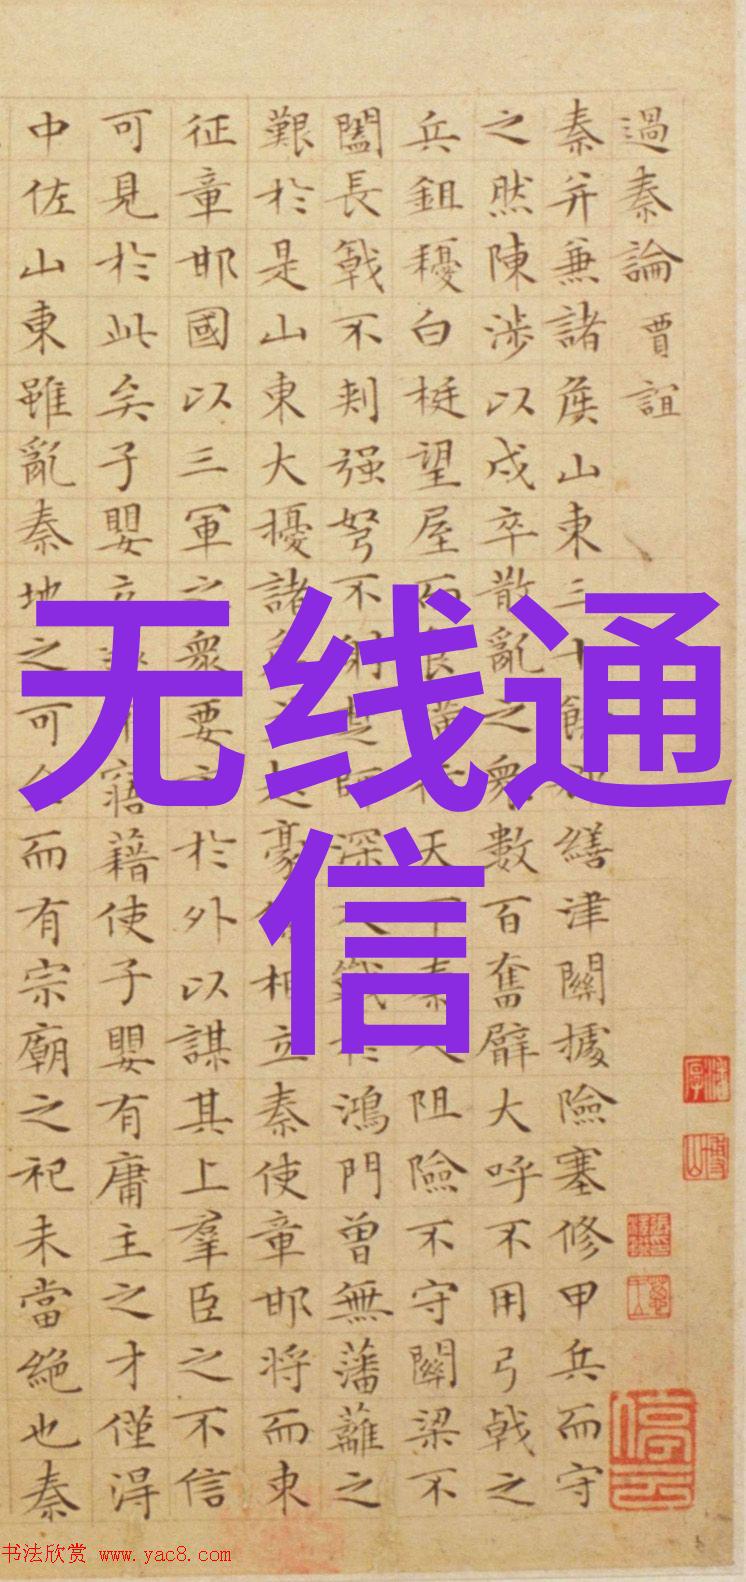 過秦論 賈誼
秦并兼諸侯山東三十餘郡繕津關據險塞修甲兵而守
之然陳涉以戍卒散亂之衆數百奮臂大呼不用弓戟之
兵鉏耰白梃望屋而食橫行天下秦人阻險不守關梁不
闔長戟不刺强弩不射楚師深入戰於鴻門曾無藩籬之
艱於是山東大擾諸侯並起豪俊相立秦使章邯將而東
征章邯國以三軍之衆要市於外以謀其上羣臣之不信
可見於此矣子嬰立遂不寤藉使子嬰有庸主之才僅得
中佐山東雖亂秦地之可全而有宗廟之祀未當絶也秦
无线通
信
书法欣赏 www.yac8.com